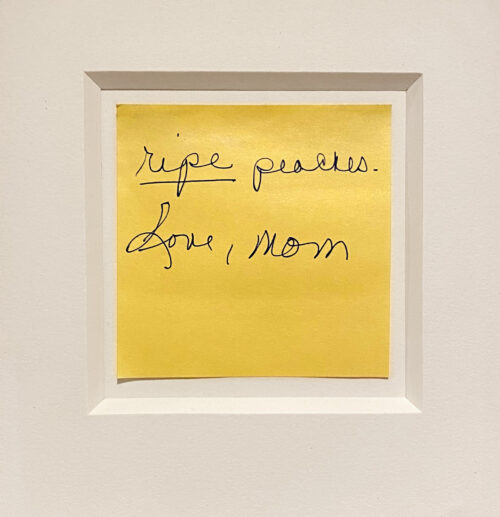 ripe peaches.
Love, Mom